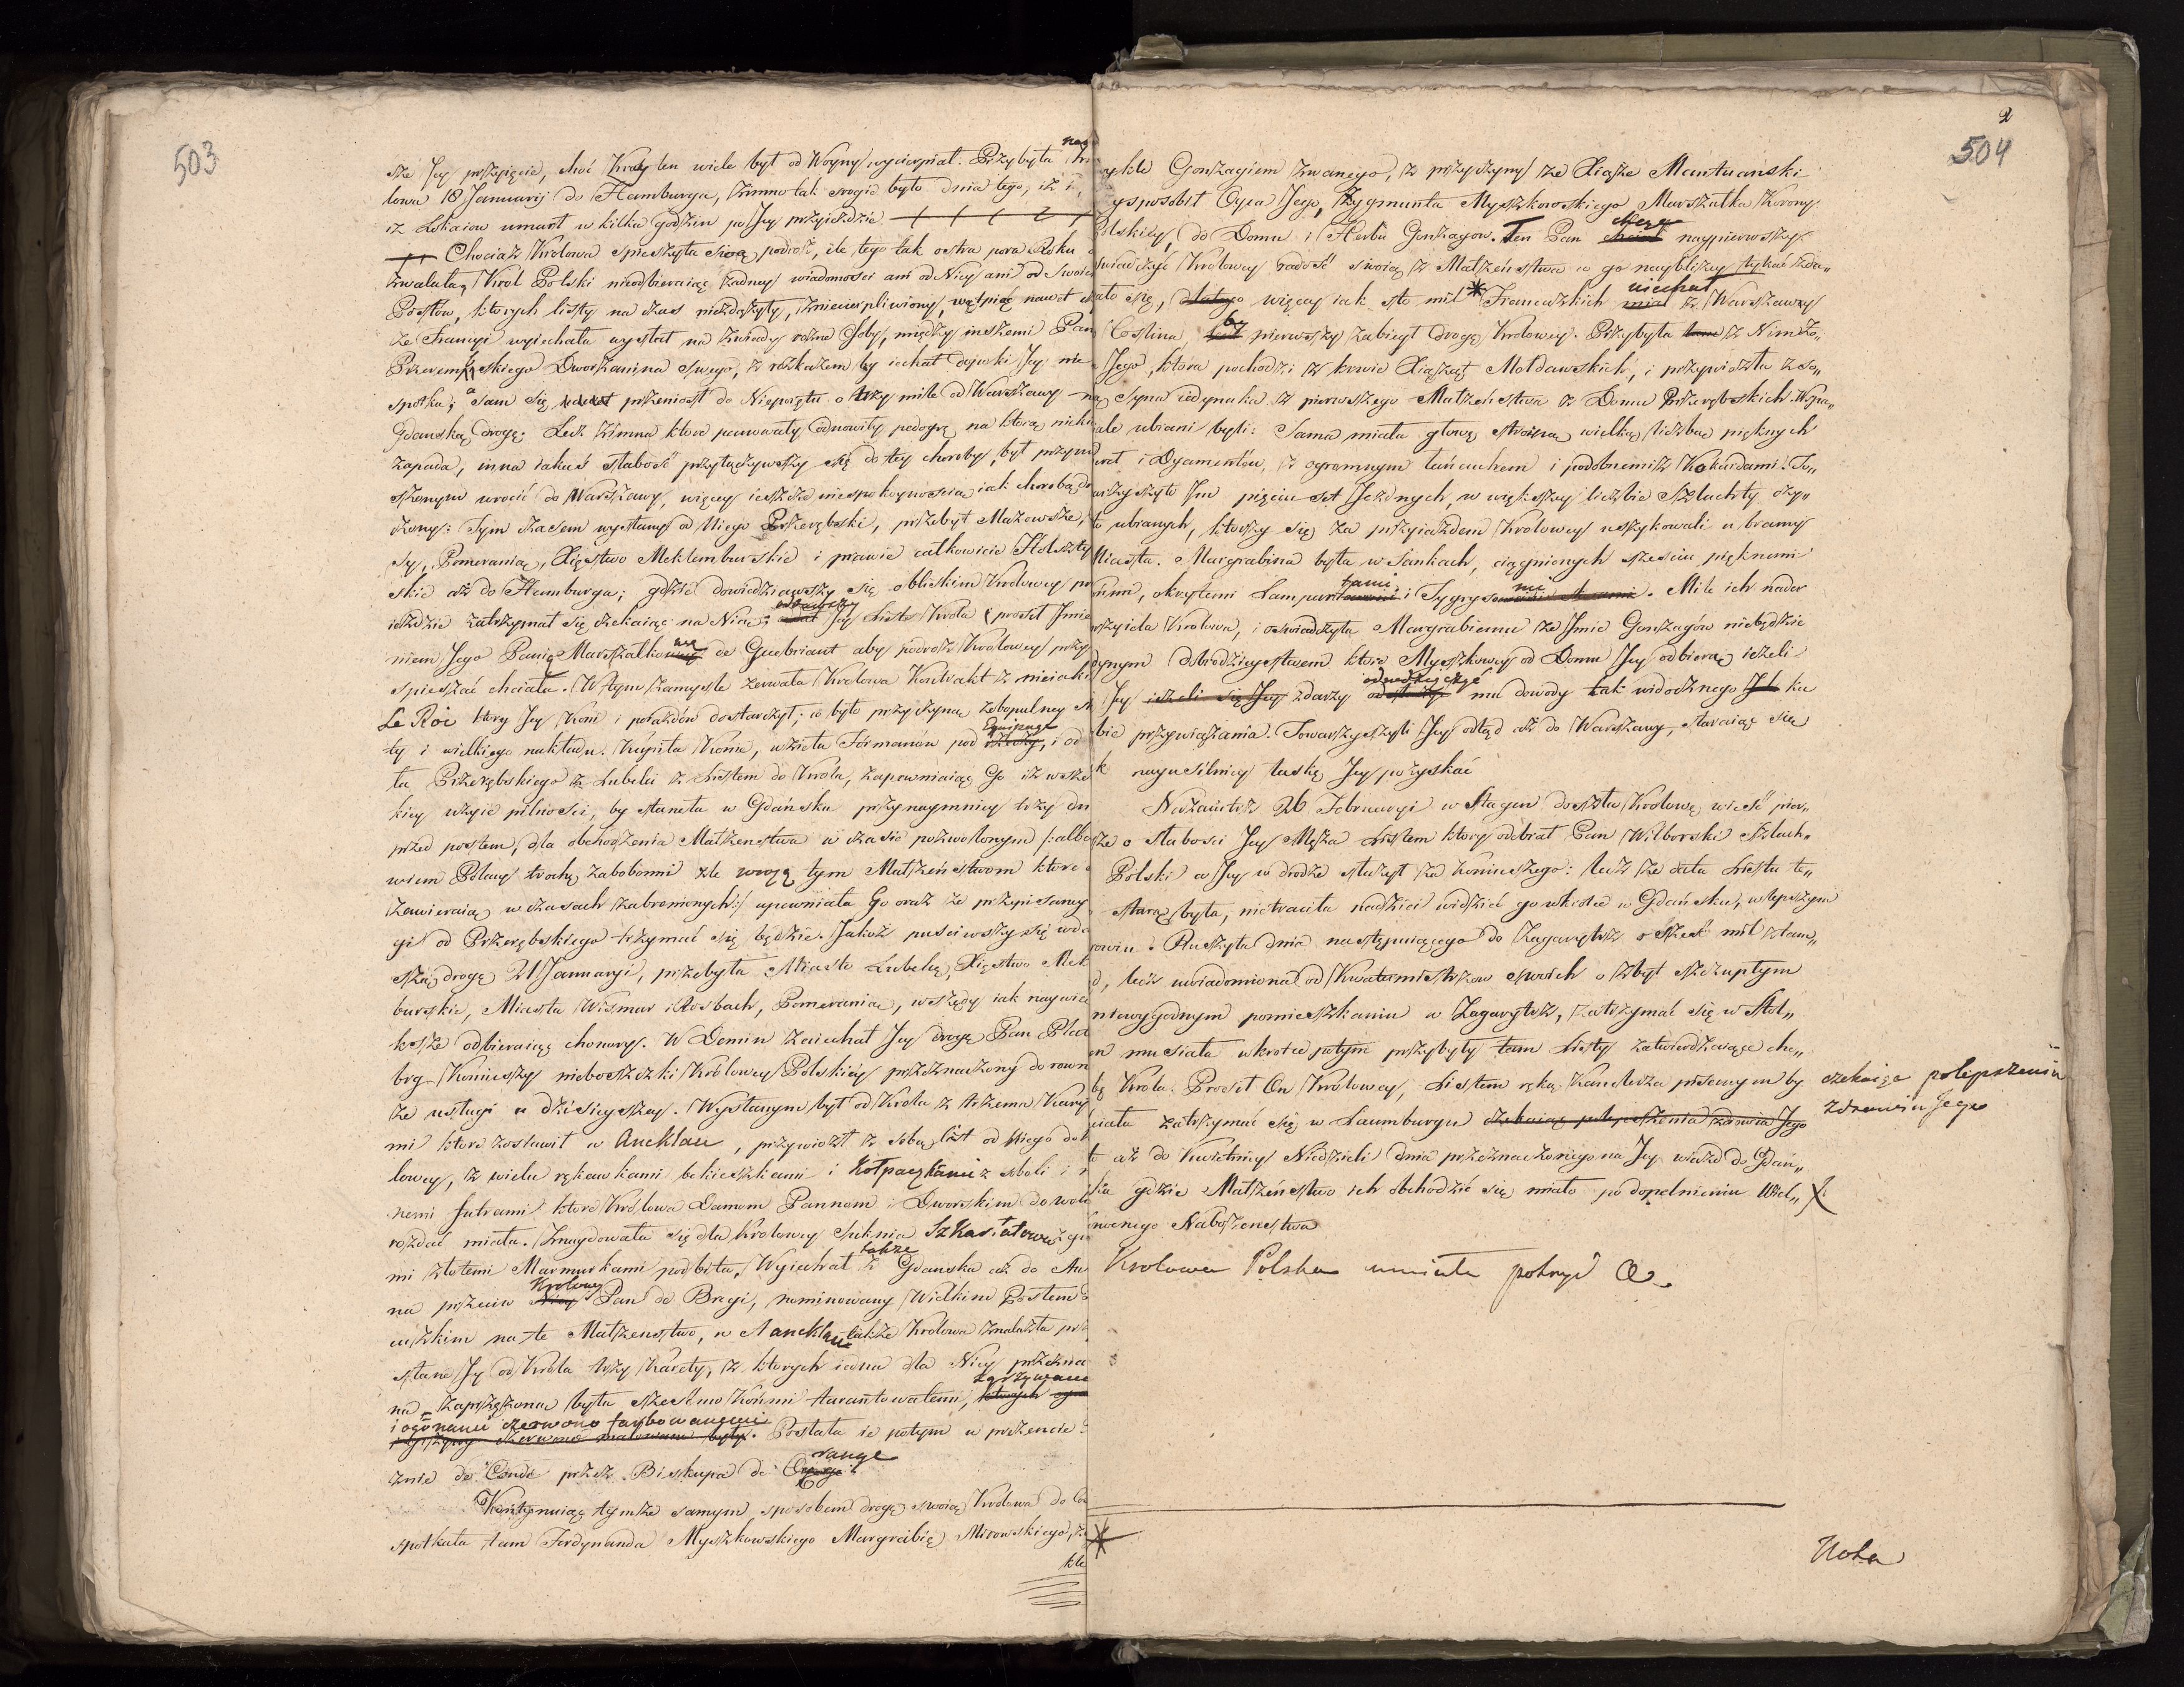 503
sze Jey przyięcie, choć Kray ten wiele był od Woyny wycierpiał. Przybyła Kró
lowa 18 Januarij do Hamburga, zimno tak srogie było dnia tego, iż i
z Lokaiow umarł w kilka godzin po Jey przyieździe
Chociaż Krolowa spieszyła swą podroż, ile tego tak ostra pora Roku
zwalała, Krol Polski nieodbieraiąc żadney wiadomości ani od Niey ani od Swoich
Posłow, ktorych listy na czas niezdążyły, zniecierpliwiony, wątpiąc nawet
ze Francyi wyiechała wysłał na zwiady rożne Osoby, między inszemi Pan
Przerembskiego Dworzanina swego, z rozkazem by iechał dopoki Jey nie
spotka; a sam się przeniosł do Nieporętu o trzy mile od Warszawy na
Gdanską drogę; Lecz zimna ktore panowały, odnowiły pedogrę na ktorą niekie
zapada, inna iakaś słabość przyłączywszy się do tey choroby, był przymu
szonym wrocić do Warszawy, więcey ieszcze niespokoynoscią iak chorobą drę
czony: Tym czasem wysłany od Niego Przerębski, przebył Mazowsze,
sy, Pomeranią, Xięstwo Meklemburskie i prawie całkowicie Holszty
skie aż do Hamburga; gdzie dowiedziawszy się o bliskim Krolowey pr
ieździe zatrzymał się czekaiąc na Nią; oddawszy Jey Liste Krola prosił Jmie
niem Jego Panią Marszałkową de Guebriant aby podroż Krolowey przy
spieszać chciała. W tym zamyśle zerwała Krolowa Kontrakt z nieiaki
Le Roi ktory Jey Koni i poiazdów dostarczył; co było przyczyną
ty i wielkiego nakładu. Kupiła Konie, wzieła Fórmanów pod Equipage, i od
ła Przerębskiego z Lubeki z Listem do Krola, zapewniaiąc Go iż wszel
kiey użyie pilności, by staneła w Gdańsku przynaymniey trzy dni
przed postem, dla obchodzenia Małzenstwa w czasie pozwolonym /:albo
wiem Polacy trochę zabobonni źle wrożą tym Małżeństwom ktore
zawieraią w czasach zabronionych:/ upewniała Go oraz że przepisaney
gi od Przerębskiego trzymać się będzie. Jakoż puściwszy się w
szą drogę 21 Januaryi, przebyła Miasto Lubekę, Xięstwo Mek
burskie, Miasta Wismar i Rosbach, Pomeranią, wszędy iak naywię
ksze odbieraiąc chonory. W Demin zaiechał Jey drogę Pan Plat
brg Koniuszy nieboszczki Krolowey Polskiey przeznaczony do rown
ze usługi u dzisieyszey. Wysłanym był od Krola z trzema Kary
mi ktore zostawił w Ancklau, przywiozł z sobą list od Niego do K
lowey, z wielu rękawkami bekieszkami i Kołpaczkami z soboli i
nemi futrami ktore Krolowa Damom Pannom i Dworskim do woli
rozdać miała. Znaydowała się dla Krolowey suknia Szkarłatowa z gu
mi złotemi Marmurkami podbita. Wyiechał także z Gdanska aż do An
na przeciw Krolowey Pan de Bregi, nominowany Wielkim Posłem
cuzkim na te Małżenstwo, w Ancklau także Krolowa znalazła prz
słane Jey od Krola trzy Karety, z ktorych iedna dla Niey przezna
na, zaprzężona była sześćmo Końmi tarantowatemi, z grzywami
i ogonami czerwono farbowanemi. Posłała ie potym w prezencie
żnie de Condé przez Biskupa de Orange
Kontynuiąc tymże samym sposobem drogę swoią Krolowa do Co
spotkała tam Ferdynanda Myszkowskiego Margrabię Mirowskiego, z
kle
2
504
zykle Gonzagiem zwanego, z przyczyny że Xiąże Mantuanski
ysposobił Oyca Jego, Zygmunta Myszkowskiego Marszałka Korony
Polskiey, do Domu i Herbu Gonzagow. Ten Pan chcąc naypierwszy
świadczyć Krolowey radość swoią z Małżeństwa co go naybliżey tykać zda„
ało się, więcey iak sto mil * Francuzkich uiechał z Warszawy
Coslina, by pierwszy zabiegł drogę Krolowey. Przybyła z Nim Żo„
Jego, ktora pochodzi z krwie Xiążąt Mołdawskich, i przywiozła z so„
ą Syna iedynaka z pierwszego Małżeństwa z Domu Przerębskich. Wspa„
ale ubrani byli: Sama miała głowę stroiną wielką liczbą pięknych
ereł i Dyamentów, z ogromnym łańcuchem i podobnemiż Kokardami. To„
arzyszyło Jm pięciu set Jezdnych, w większey liczbie Szlachty czy„
to ubranych, ktorzy się za przyiazdem Krolowey uszykowali u bramy
Miasta. Margrabina była w Sankach, ciągnionych sześciu pięknemi
ńmi, okrytemi Lampartami i Tygrysami. Mile ich nader
przyieła Krolowa, i oswiadczyła Margrabiemu że Jmie Gonzagów niebędzie
dynym dobrodzieystwem ktore Myszkowscy od Domu Jey odbieraą ieżeli
Jey zdarzy odwdzięczyć mu dowody tak widocznego ku
bie przywiązania. Towarzyszyli Jey odtąd aż do Warszawy, staraiąc się
k nayusilniey łaskę Jey pozyskać
Nazaiutrz 26 Februaryi w Stagen doszła Krolową wieść pier„
sza o słabości Jey Męża Listem ktory odebrał Pan Wilborski szlach„
Polski co Jey w drodze służył za Koniuszego: lecz że data Listu te„
starą była, nietraciła nadziei widzieć go wkrotce w Gdańsku, w lepszym
rowiu. Ruszyła dnia następuiącego do Zagarytz o sześć mil ztam„
d, lecz uwiadomiona od Kwatermistrzow swoich o zbyt szczupłym
niewygodnym pomieszkaniu w Zagarytz, zatrzymać się w Stol„
en musiała wkrotce potym przybyły tam Listy zatwierdzaiące cho„
bę Krola. Prosił On Krolowey, Listem ręką Kanclerza pisanym by
ciała zatrzymać się w Laumburgu czekaiąc polepszenia zdrowia Jego
czekaiąc polepszenia
zdrowia Jego
to aż do Kwietniey Niedzieli dnia przeznaczonego na Jey wiazd do Gdań„
ska gdzie Małżeństwo ich obchodzić się miało po dopełnieniu Wiel„
nocnego Nabożenstwa
Krolowa Polska umiała pokryć &.
*
Nota